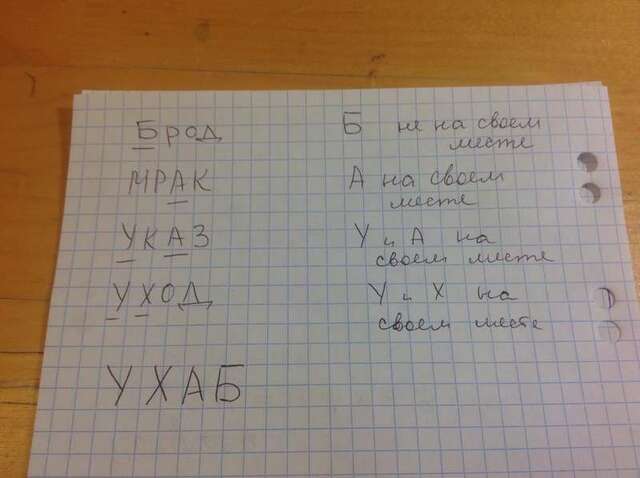 БРОД Б не на своем
месте
МРАК А на своем
месте
УКАЗ У и А на
своем месте
УХОД У и Х на
своем месте
УХАБ